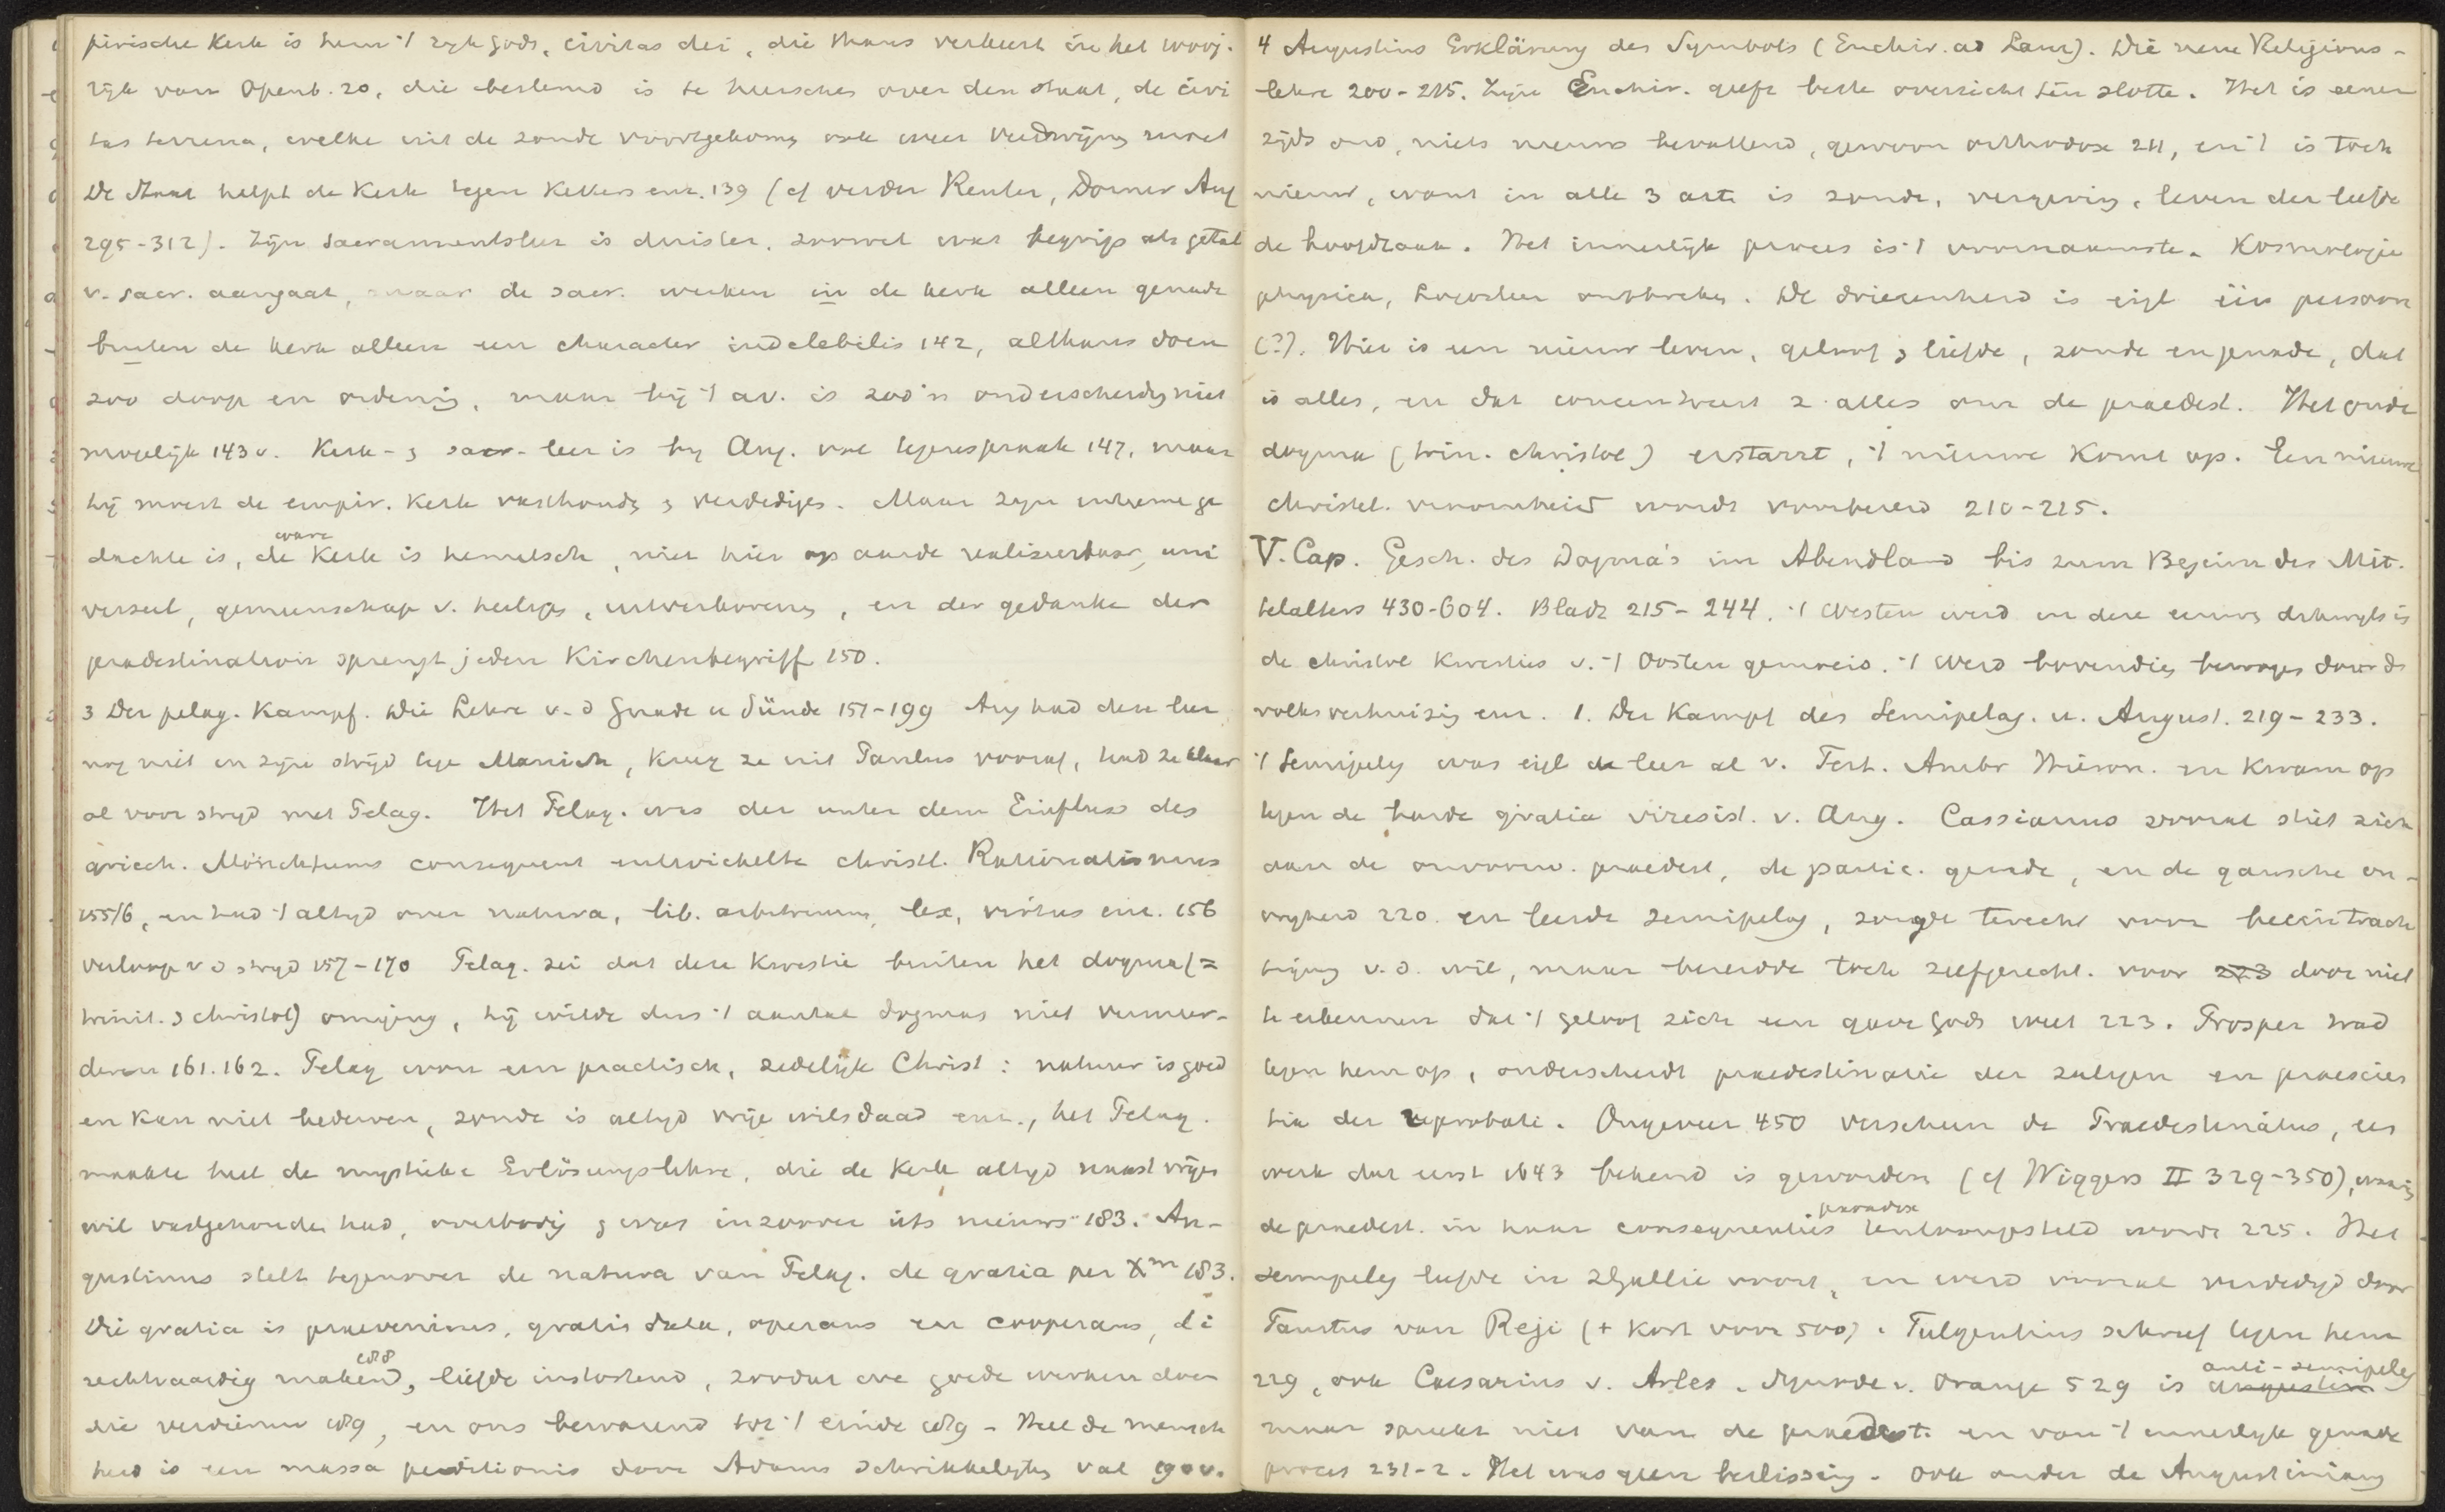 pirische Kerk is hem 't ryk gods, civitas dei, die thans verkeert in het 1000j.
rijk van Openb. 20, die bestemd is te heerschen over den staat, de civi
tas terrena, welke uit de zonde voortgekomen ook weer verdwijnen moet
De Staat helpt de Kerk tegen Ketters enz. 139 (cf verder Reuter, Dorner Aug
295-312). Zijn Sacramentsleer is duister, zoowel wat begrip als getal
v. sacr. aangaat, maar de sacr. werken in de kerk alleen genade
buiten de kerk alleen een character indelebilis 142, althans doen
zoo doop en ordening, maar bij 't av. is zoo'n onderscheidg niet
mogelijk 143 v. Kerk- & sacr-leer is by Aug. vol tegenspraak 147, maar
hij moest de empir. Kerk vasthouden & verdedigen. Maar zijn intieme ge
dachte is, de ware Kerk is hemelsch, niet hier op aarde realiseerbaar, uni
verseel, gemeenschap v. heiligen, uitverkorenen, en der gedanke der
praedestination sprengt jeden Kirchenbegriff 150.
3 Der pelag. Kampf. Die Lehre v. d Gnade u Sünde 151-199 Aug had deze leer
nog niet in zijn strijd tege Manich, kreeg ze uit Paulus vooraf, had ze klaar
al voor strijd met Pelag. Het Pelag. was der unter dem Einfluss des
griech. Mönchtums consequent entwickelte christl. Rationalismus
155/6, en had 't altyd over natura, lib. arbitrium, lex, virtus enz. 156
Verloop v d stryd 157-170 Pelag. zei dat deze kwestie buiten het dogma (=
trinit. & christol) omging, hij wilde dus 't aantal dogmas niet vermeer-
deren 161.162. Pelag was een practisch, zedelijk Christ: natuur is goed
en kan niet bederven, zonde is altyd vrije wilsdaad enz., het Pelag.
maakte heel de mystieke Erlösungslehre, die de Kerk altyd naast vrijen
wil vastgehouden had, overbodig & was inzoover iets nieuws 183. Au-
gustinus stelt tegenover de natura van Pelag. de gratia per Xm 183.
Die gratia is praeveniens, gratis data, operans en cooperans, di
rechtvaardig makend 188, liefde instortend, zoodat we goede werken doen
die verdienen 189, en ons bewarend tot 't einde 189 - Heel de mensch
heid is een massa perditionis door Adams schrikkelyken val 190 v.
4 Augustins Erklärung des Symbols (Enchir. ad Laur). Die neue Religions-
lehre 200-215. Zijn Enchir. geeft beste overzicht ten slotte. Het is eener
zijds oud, niets nieuws bevattend, gewoon orthodox 211, en 't is toch
nieuw, want in alle 3 artt is zonde, vergeving, leven der liefde
de hoofdzaak. Het innerlijk proces is 't voornaamste. Kosmologie
physica, Logosleer ontbreken. De drieeenheid is eigl één persoon
(?). Hier is een nieuw leven, geloof & liefde, zonde en genade, dat
is alles, en dat concentreert z. alles om de praedest. Het oude
dogma (trin. christol) erstarrt, 't nieuwe komt op. Een nieuwe
christel. vroomheid wordt voorbereid 210-215.
V. Cap. Gesch. des Dogma's im Abendland bis zum Beginn des Mit-
telalters 430-604. Bladz 215-244. 't Westen werd in deze eeuwen
de christol kwesties v. 't Oosten gemoeid. 't Werd bovendien bewogen door de
volksverhuizing enz. 1. Der Kampf des Semipelag. u. August. 219-233.
't Semipelag was eigl de leer al v. Tert. Ambr Hieron. en kwam op
tegen de harde gratia irresist. v. Aug. Cassianus vooral stiet zich
aan de onvoorw. praedest, de partic. genade, en de gansche on-
vryheid 220. en leerde semipelag, zorgde terecht voor beeintrach
tiging v. d. wil, maar bereidde toch zelfgerecht. voor 223 door niet
te erkennen dat 't geloof zich een gave Gods weet 223. Prosper trad
tegen hem op, onderscheidt praedestinatie der zaligen en praescien
tia der reprobati. Ongeveer 450 verscheen de Praedestinatus, een
werk dat eerst 1643 bekend is geworden (cf Wiggers II 329-350), waarin
de praedest. in haar consequenties paradox tentoongesteld wordt 225. Het
semipelag leefde in Zgallie voort, en werd vooral verdedigd door
Faustus van Reji (+ kort voor 500). Fulgentius schreef tegen hem
229, ook Caesarius v. Arles. Synode v. Orange 529 is augustin anti-semipelag
maar spreekt niet van de praedest. en van 't innerlyk genade
proces 231-2. Het was geen beslissing. Ook onder de Augustinians